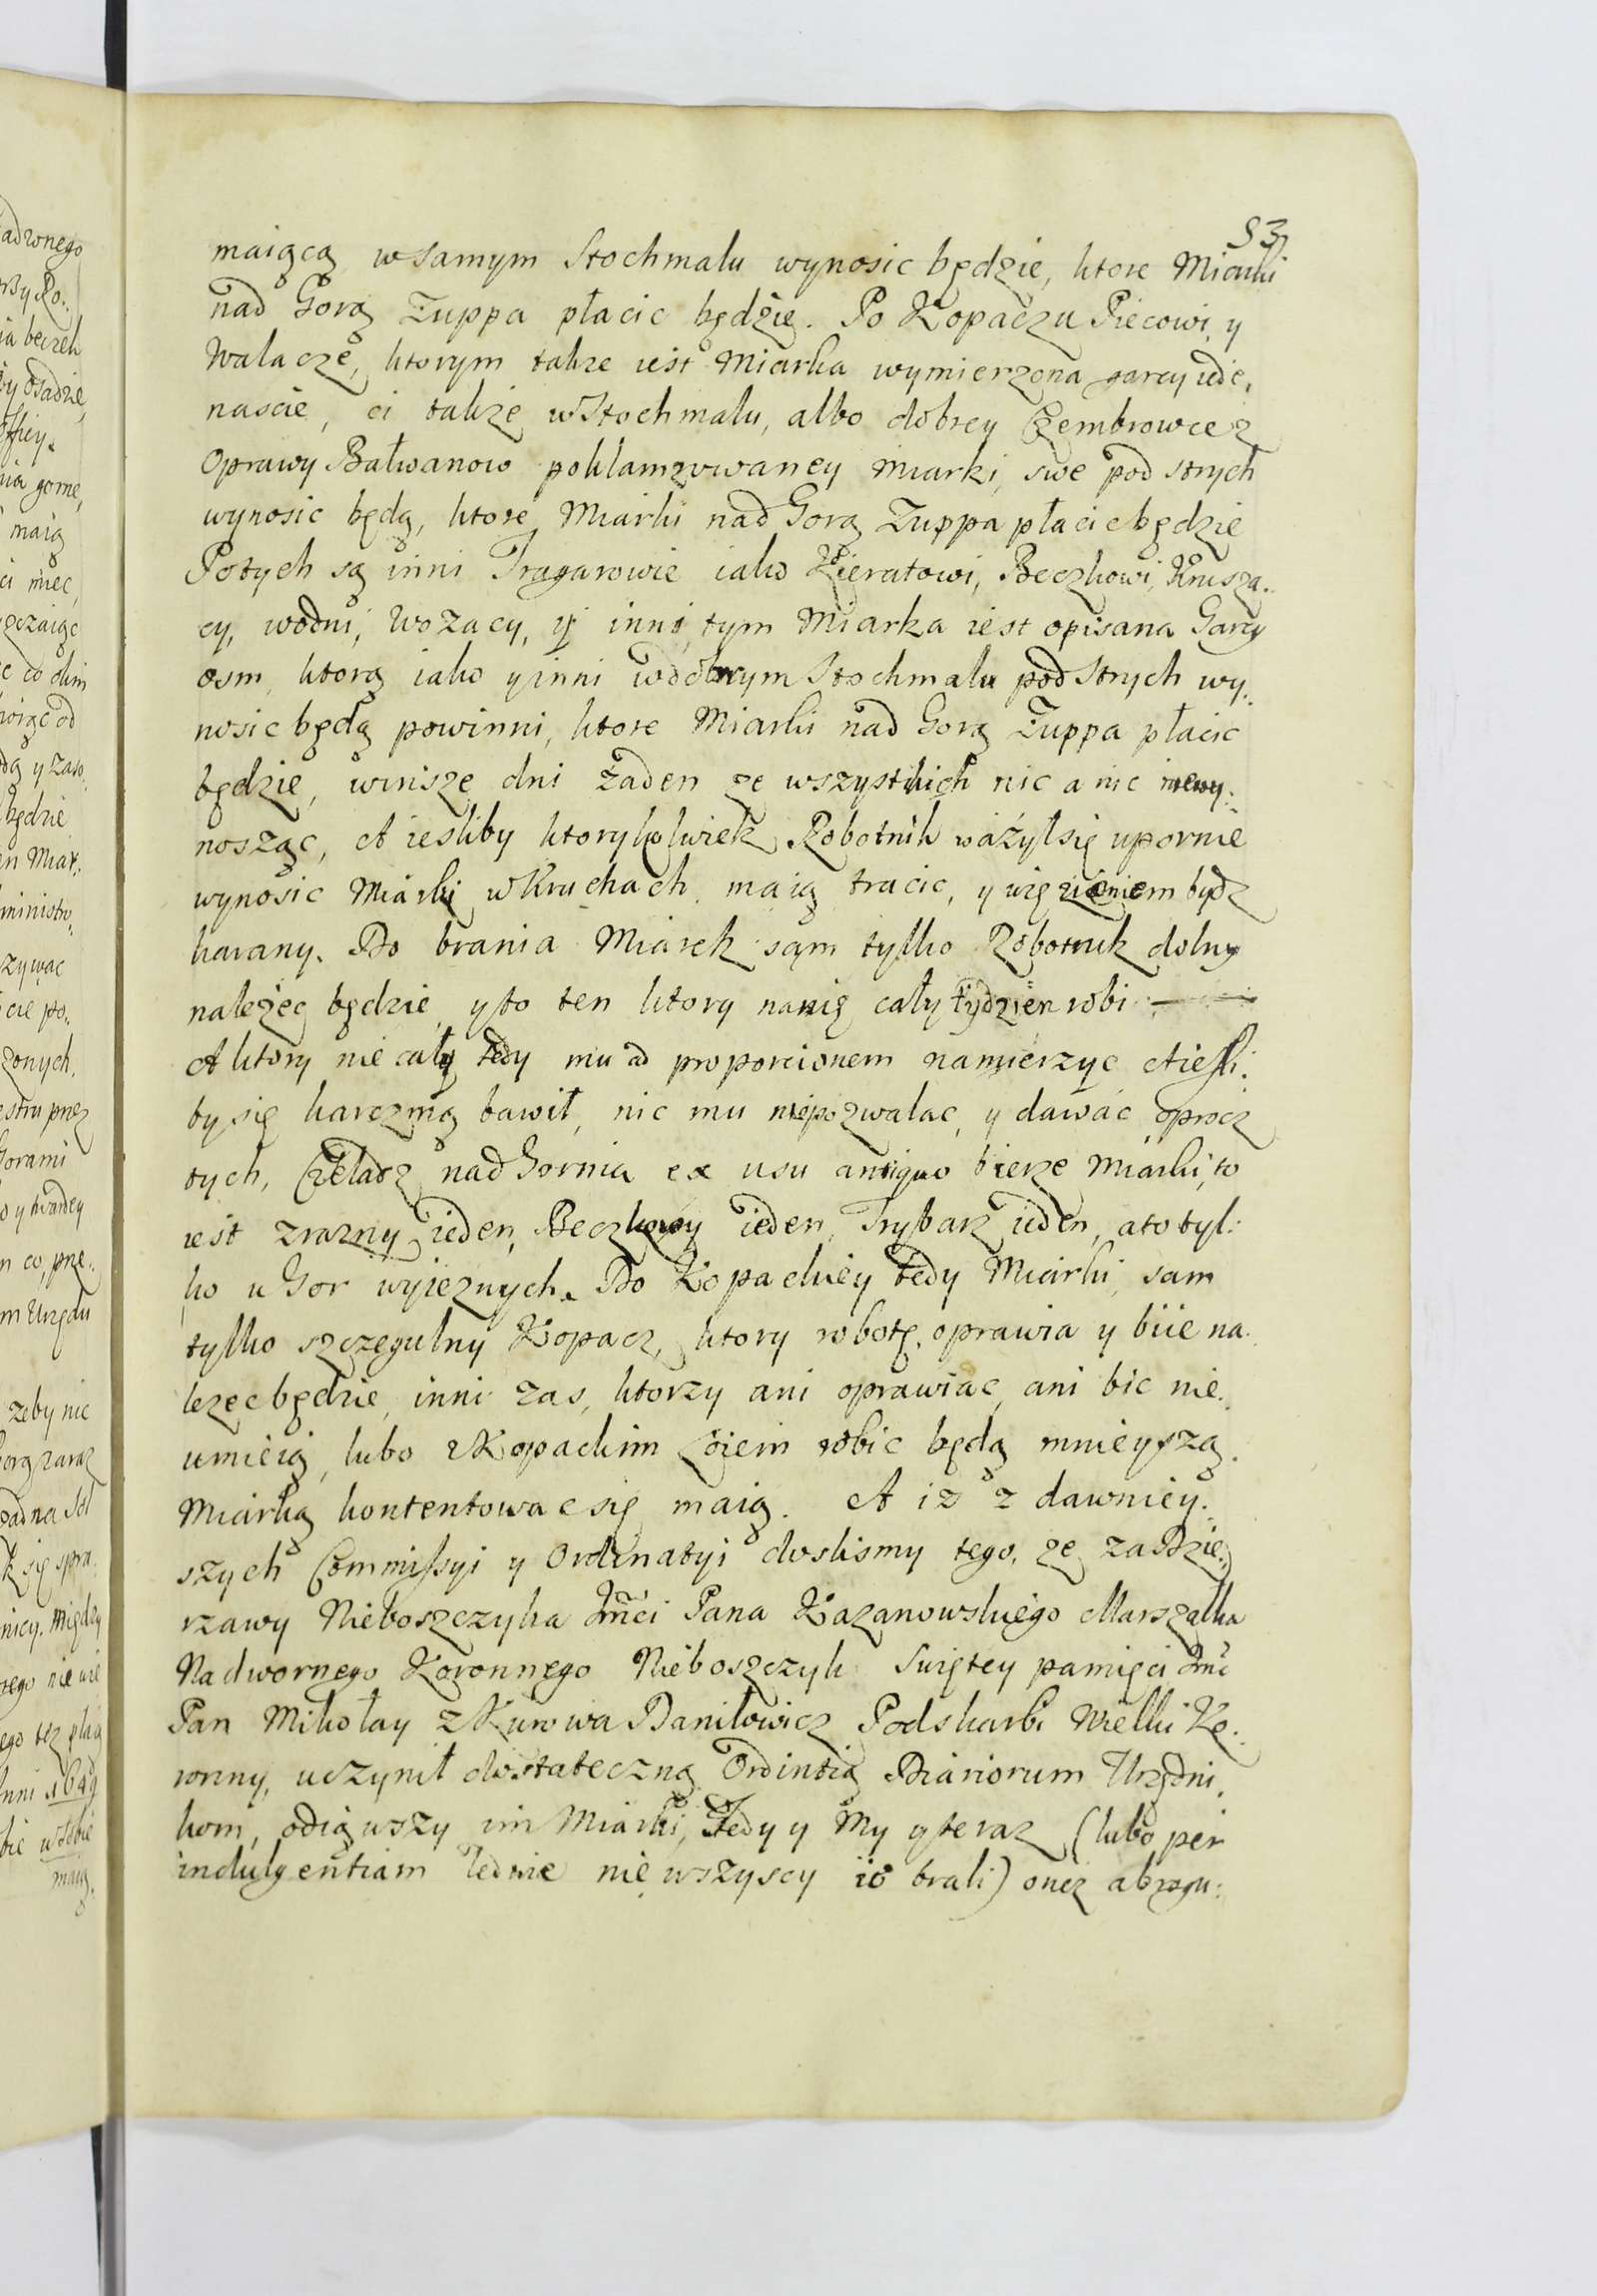 53
maiącą w samym Stochmalu wynosic będzie, ktore Miarki
nad Gorą Zuppa płacic będzie. Po Kopaczu Piecowi, y
Walacze, ktorym takze iest Miarka wymierzona garcy iede.
nascie, ci takze w Stochmalu, albo dobrey Czembrowce z
Oprawy Bałwanow poklamrowaney miarki, swe pod strych
wynosic będą, ktore Miarki nad Gorą Zuppa płacic będzie
Po tych są inni Tragarowie iako Kieratowi, Beczkowi, Krusza..
cy, wodni, Wozacy, y inni, tym Miarka iest opisana Garcy
osm, ktorą iako y inni w dobrym Stochmalu pod Strych wy.
nosic będą powinni, ktore Miarki nad Gorą Zuppa płacic
będzie, w insze dni żaden ze wszystkich nic a nic niewy:
nosząc, A iesliby ktorykolwiek Robotnik ważył się upornie
wynosic Miarki w Kruchach, maią tracic, y więzieniem bydz
karany. Do brania Miarek sam tylko Robotnik dolny
należec będzie, y to ten ktory na nię cały tydzien robi
A ktory nie cały tedy mu ad proporcionem namierzyc A iesli.
by się karczmą bawił, nic mu niepozwalac, y dawac oprocz
tych, Czeladz nad Gornia ex usu antiquo bierze Miarki, to
iest zrazny ieden, Beczkowy ieden, Trybarz ieden, a to tyl:
ko u Gor wyieznych. Do Kopackiey tedy Miarki, sam
tylko szczegulny Kopacz, ktory robotę oprawia y biie na.
lezec będzie, inni zas, ktorzy ani oprawiac, ani bic nie.
umieią, lubo z Kopackim Coiem robic będą mnieyszą.
Miarką kontentowac się maią. A iz z dawniey.
szych Commissyi y Ordinatyi doslismy tego, ze za Dzie.
rzawy Nieboszczyka Jmci Pana Kazanowskiego Marszałka
Nadwornego Koronnego Nieboszczyk Swiętey pamięci Jmc
Pan Mikołay z Kurowa Daniłowicz Podskarbi Wielki Ko.
ronny, uczynił dostateczną Ordintią Diariorum Urzędni.
kom, odiąwszy im Miarki, Tedy y My y teraz (lubo per
indulgentiam ledwie nie wszyscy io brali) onez abrogu: